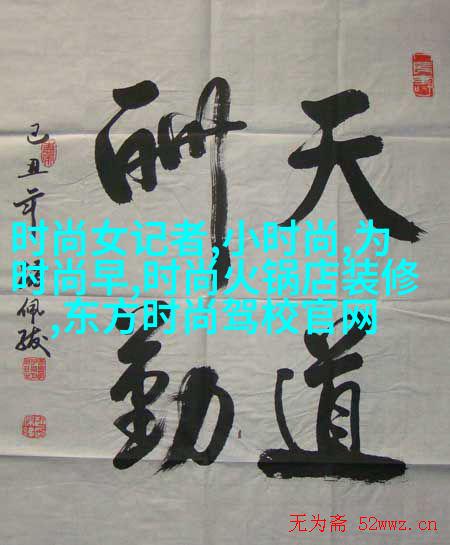 天道
酬勤
己丑年 佩
时尚女记者,小时尚,为
时尚早,时尚火锅店装修
,东方时尚驾校官网
无为斋 52wwz.cn